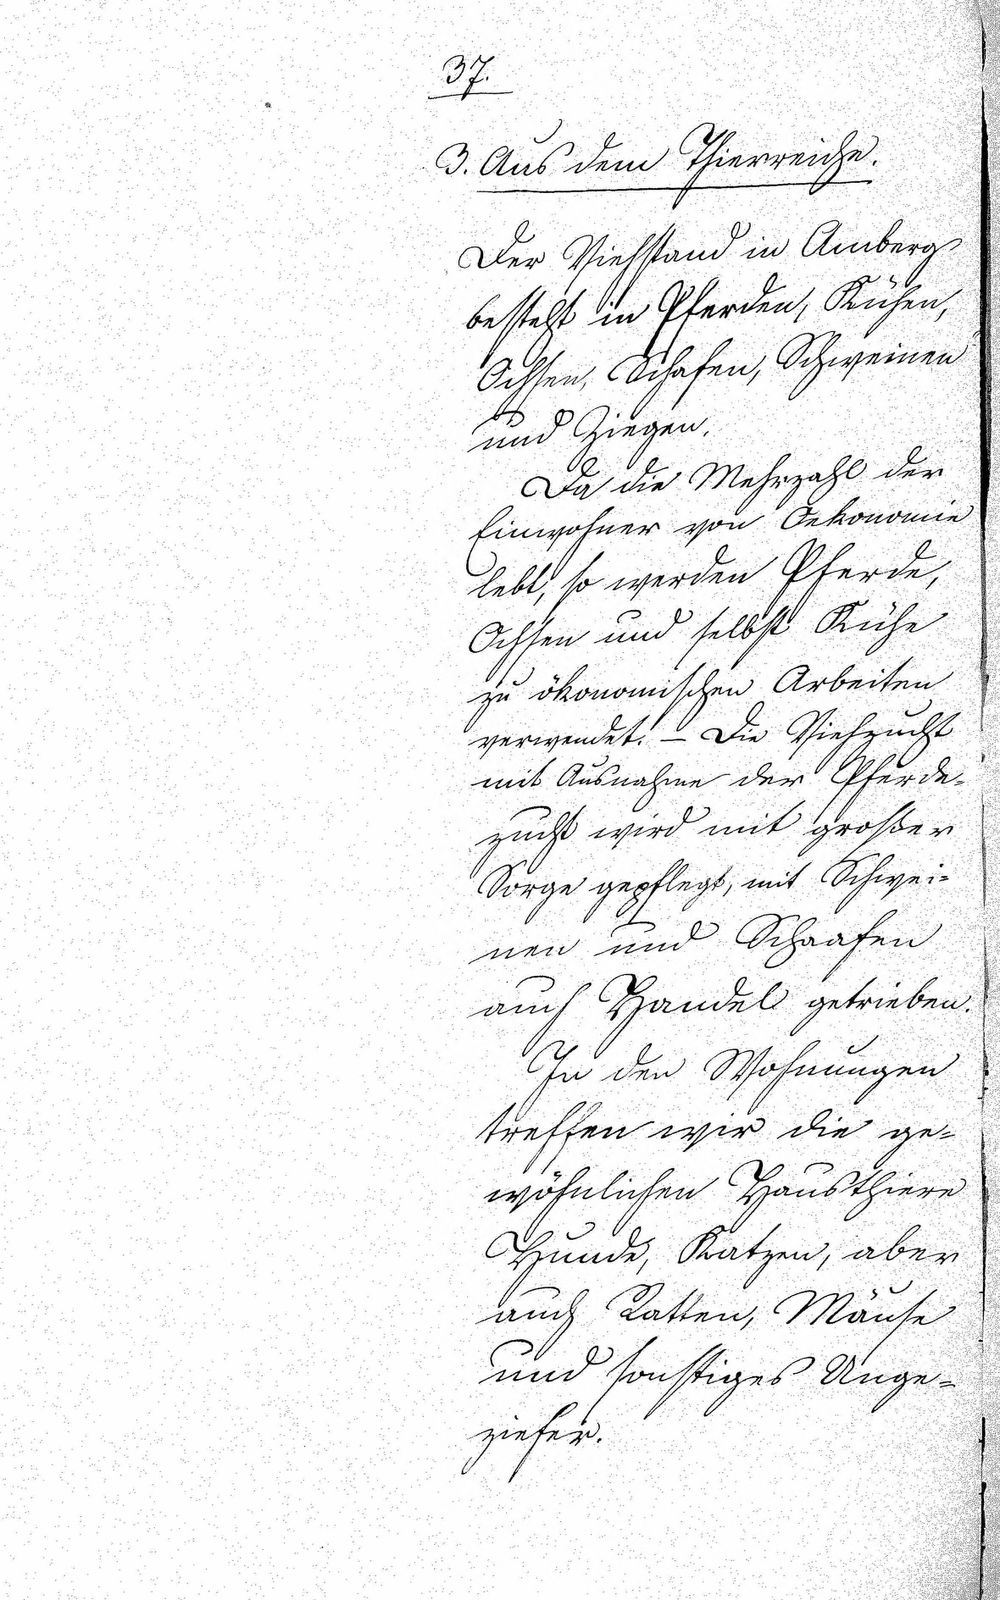 37.
3. Aus dem Thierreiche.
Der Viehstand in Amberg
besteht in Pferden, Kühen,
Ochsen, Schafen, Schweinen
und Ziegen.
Da die Mehrzahl der
Einwohner von Oekonomie
lebt, so werden Pferde,
Ochsen und selbst Kühe
zu ökonomischen Arbeiten
verwendet. – Die Viehzucht
mit Ausnahme der Pferde-
zucht wird mit großer
Sorge gepflegt, mit Schwei-
nen und Schaafen
auch Handel getrieben.
In den Wohnungen
treffen wir die ge-
wöhnlichen Hausthiere
Hunde, Katzen, aber
auch Ratten, Mäuse
und sonstiges Unge-
ziefer.